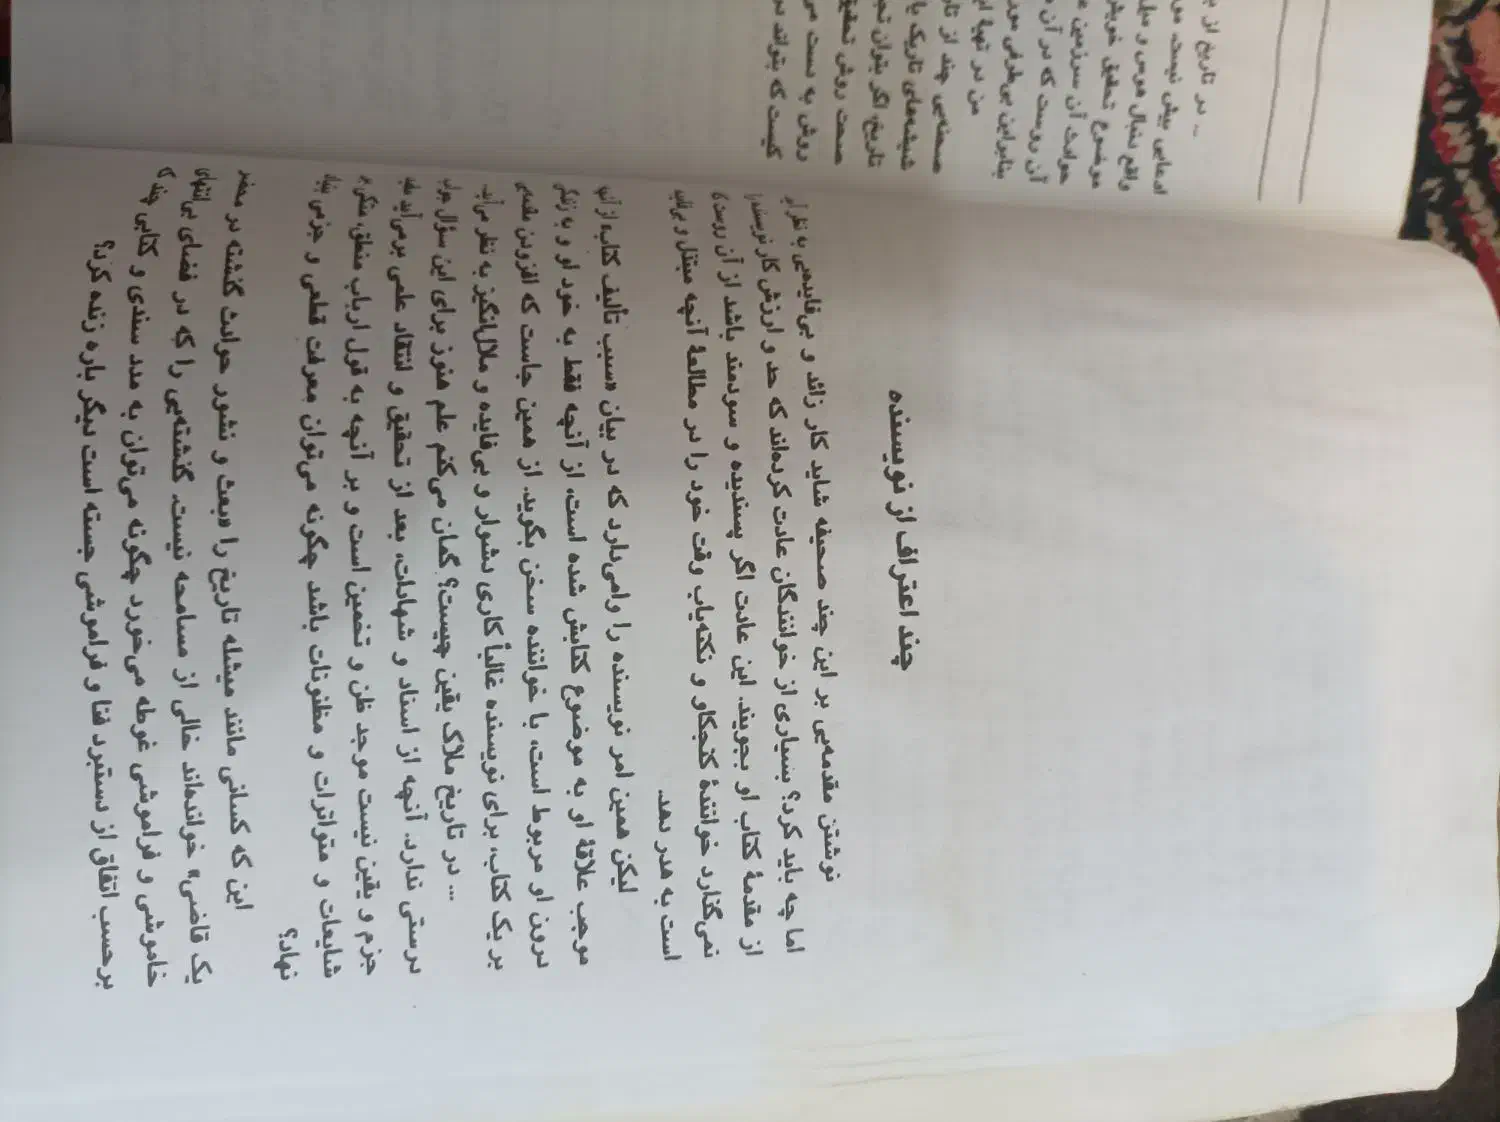 چند اعتراف از نویسنده
نوشتن مقدمه‌یی بر این چند صحیفه شاید کار زائد و بی‌فایده‌یی به نظر آید
اما چه باید کرد؟ بسیاری از خوانندگان عادت کرده‌اند که حد و ارزش کار نویسنده را
از مقدمهٔ کتاب او بجویند. این عادت اگر پسندیده و سودمند باشد از آن روست که
نمی‌گذارد خوانندهٔ کنجکاو و نکته‌یاب وقت خود را در مطالعهٔ آنچه مبتذل و بی‌فایده
است به هدر دهد.
لیکن همین امر نویسنده را وامی‌دارد که در بیان «سبب تألیف کتاب» از آنچه
موجب علاقهٔ او به موضوع کتابش شده است، از آنچه فقط به خود او و به زندگی
درون او مربوط است، با خواننده سخن بگوید. از همین جاست که افزودن مقدمه‌یی
بر یک کتاب، برای نویسنده غالباً کاری دشوار و بی‌فایده و ملال‌انگیز به نظر می‌آید.
... در تاریخ ملاک یقین چیست؟ گمان می‌کنم علم هنوز برای این سؤال جواب
درستی ندارد. آنچه از اسناد و شهادات، بعد از تحقیق و انتقاد علمی برمی‌آید مفید
جزم و یقین نیست موجد ظن و تخمین است و بر آنچه به قول ارباب منطق، متکی بر
شایعات و متواترات و مظنونات باشد چگونه می‌توان معرفت قطعی و جزمی بنیاد
نهاد؟
این که کسانی مانند میشله تاریخ را «بعث و نشور حوادث گذشته در محضر
یک قاضی» خوانده‌اند خالی از مسامحه نیست. گذشته‌یی را که در فضای بی‌انتهای
خاموشی و فراموشی غوطه می‌خورد چگونه می‌توان به مدد سندی و کتابی چند که
برحسب اتفاق از دستبرد فنا و فراموشی جسته است دیگر باره زنده کرد؟
... در تاریخ از
ادعایی بیش نیست.
واقع دنبال هوس و میل
موضوع تحقیق خویش
حوادث آن سرزمین
آن روست که در آن
بنابراین بی‌طرفی
من در تهیهٔ
صحنه‌یی چند از
شیشه‌های تاریک
تاریخ، اگر بتوان
صحت روش تحقیق
روش به دست
کیست که بتواند